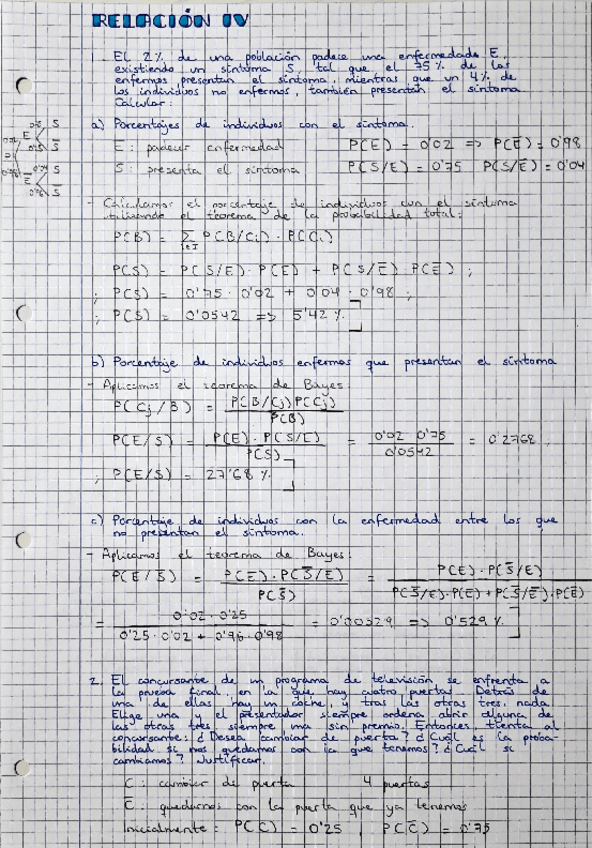 RELACIÓN IV
1. El 2% de una población padece una enfermedade E,
existiendo un síntoma S tal que el 75% de los
enfermos presentan el síntoma, mientras que un 4% de
los individuos no enfermos, también presentan el síntoma
Calcular:
a) Porcentajes de individuos con el síntoma.
E: padecer enfermedad P(E) = 0'02 => P(E̅) = 0'98
S: presenta el síntoma P(S/E) = 0'75 P(S/E̅) = 0'04
E S
S̅
E̅ S
S̅
- Calculamos el porcentaje de individuos con el síntoma
utilizando el teorema de la probabilidad total:
P(B) = Σ P(B/Ci) · P(Ci)
P(S) = P(S/E) · P(E) + P(S/E̅) P(E̅) ;
; P(S) = 0'75 · 0'02 + 0'04 · 0'98 ;
; P(S) = 0'0542 => 5'42 %
b) Porcentaje de individuos enfermos que presentan el síntoma
- Aplicamos el teorema de Bayes:
P(Cj/B) = P(B/Cj) P(Cj) / P(B)
P(E/S) = P(E) · P(S/E) / P(S) = 0'02 · 0'75 / 0'0542 = 0'2768 ;
; P(E/S) = 27'68 %
c) Porcentaje de individuos con la enfermedad entre los que
no presentan el síntoma.
- Aplicamos el teorema de Bayes:
P(E/S̅) = P(E) · P(S̅/E) / P(S̅) = P(E) · P(S̅/E) / P(S̅/E) · P(E) + P(S̅/E̅) · P(E̅)
= 0'02 · 0'25 / 0'25 · 0'02 + 0'96 · 0'98 = 0'00529 => 0'529 %
2. El concursante de un programa de televisión se enfrenta a
la prueba final, en la que hay cuatro puertas. Detrás de
una de ellas hay un coche, y tras las otras tres, nada
Elige una y el presentador siempre ordena abrir alguna de
las otras tres, siempre una sin premio. Entonces, tienta al
concursante: ¿Desea cambiar de puerta? ¿Cuál es la proba-
bilidad si nos quedamos con la que tenemos? ¿Cuál si
cambiamos? Justificar.
C: cambiar de puerta 4 puertas
C̅: quedarnos con la puerta que ya tenemos
Inicialmente: P(C) = 0'25 , P(C̅) = 0'75